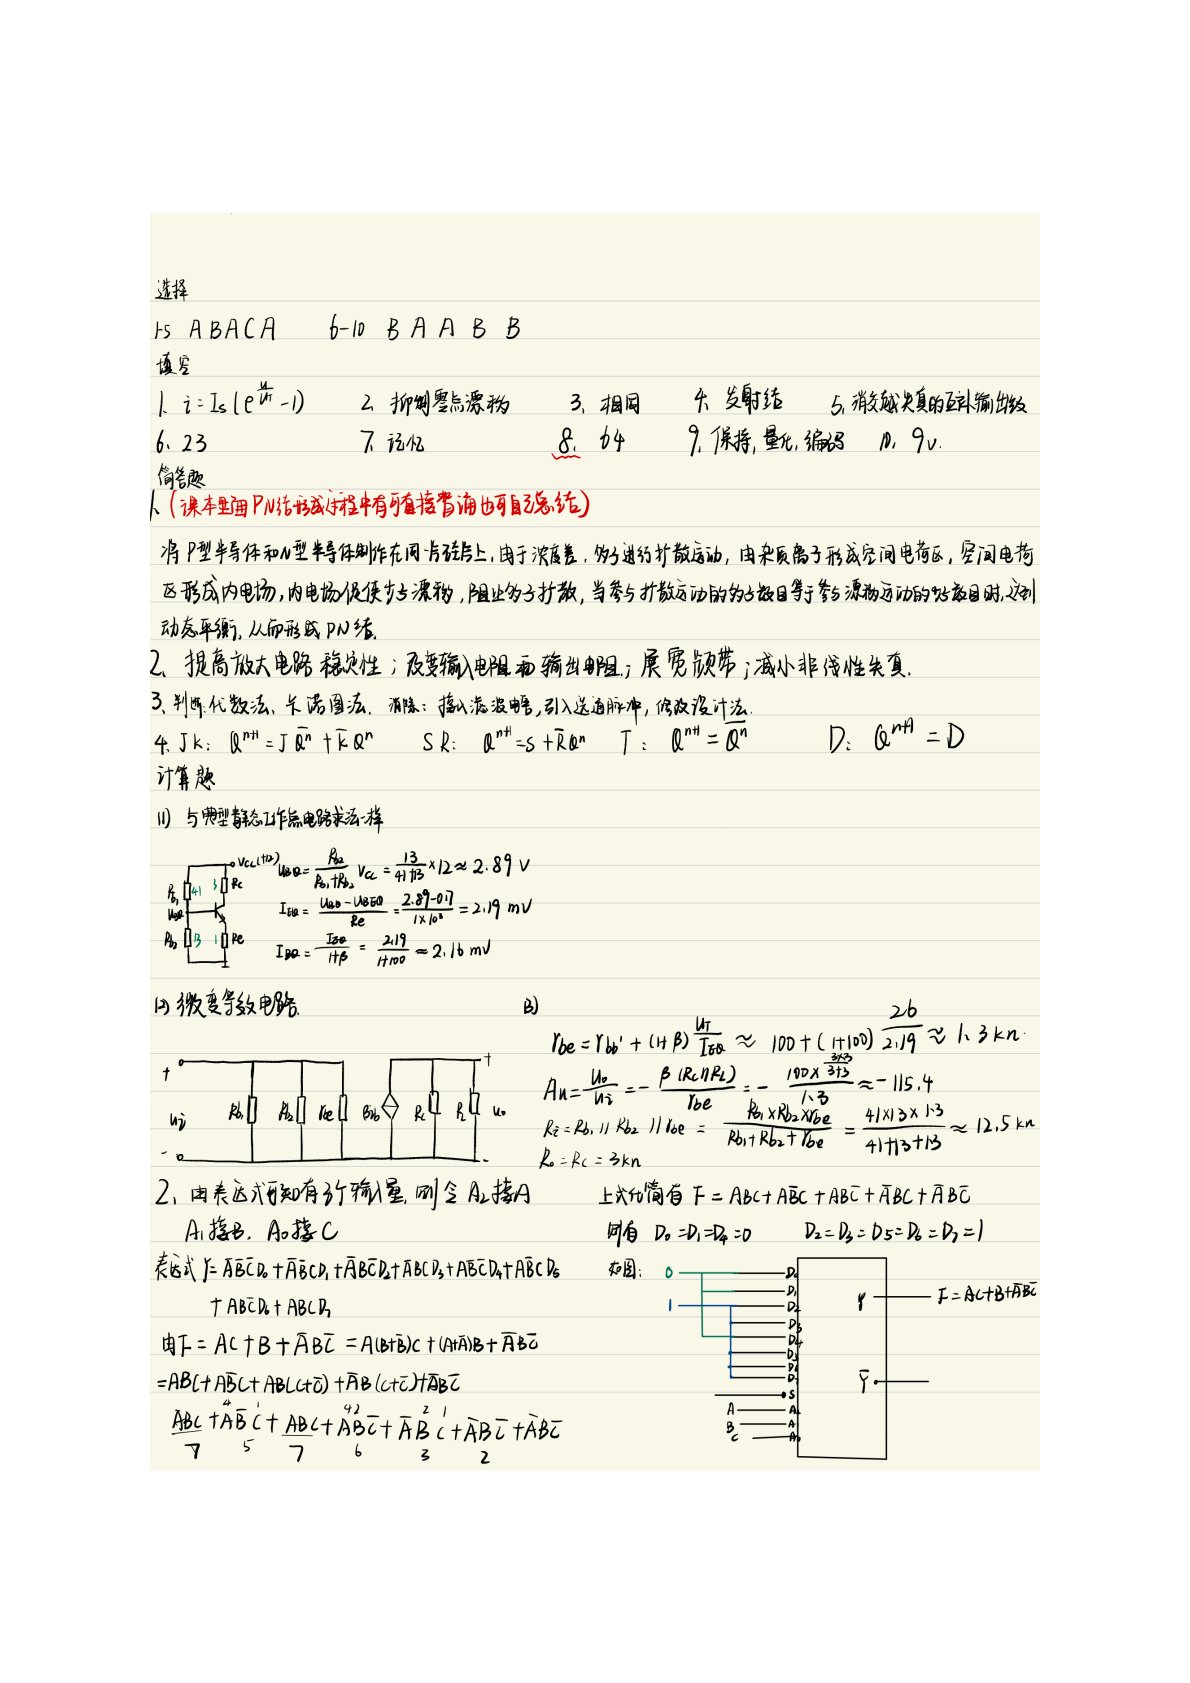 选择
1-5 A B A C A 6-10 B A A B B
填空
1、i=Is(e^(u/UT)-1) 2、抑制零点漂移 3、相同 4、发射结 5、消除交越失真的互补输出级
6、23 7、记忆 8、64 9、保持,量化,编码 10、9V.
简答题
1、(课本里面PN结形成过程中有可直接誊涌也可自己总结)
将P型半导体和N型半导体制作在同一片硅片上,由于浓度差,多子进行扩散运动,由杂质离子形成空间电荷区,空间电荷
区形成内电场,内电场促使少子漂移,阻止多子扩散,当参与扩散运动的多子数目等于参与漂移运动的少子数目时,达到
动态平衡,从而形成PN结.
2、提高放大电路稳定性;改变输入电阻和输出电阻;展宽频带;减小非线性失真.
3、判断:代数法、卡诺图法. 消除:接入滤波电容,引入选通脉冲,修改设计法.
4、JK: Qⁿ⁺¹=JQ̄ⁿ+K̄Qⁿ SR: Qⁿ⁺¹=S+R̄Qⁿ T: Qⁿ⁺¹=Q̄ⁿ D: Qⁿ⁺¹=D
计算题
(1) 与典型静态工作点电路求法一样
Vcc(+12) Rb1 41 3 Rc UBQ Rb2 13 1 Re
UBQ=Rb2/(Rb1+Rb2) Vcc=13/(41+13)×12≈2.89V
IEQ=(UBQ-UBEQ)/Re=(2.89-0.7)/(1×10³)=2.19mV
IBQ=IEQ/(1+β)=2.19/(1+100)≈2.16mV
(2) 微变等效电路.
+ ui - Rb1 Rb2 rbe βib Rc RL + uo -
(3)
rbe=rbb'+(1+β)UT/IEQ≈100+(1+100)26/2.19≈1.3kΩ.
Au=uo/ui=-β(Rc//RL)/rbe=-(100×(3×3)/(3+3))/1.3≈-115.4
Ri=Rb1//Rb2//rbe=(Rb1×Rb2×rbe)/(Rb1+Rb2+rbe)=(41×13×1.3)/(41+13+13)≈12.5kΩ
Ro=Rc=3kΩ
2、由表达式可知有3个输入量,则令A₂接A
A₁接B, A₀接C
表达式Y=ĀB̄C̄D₀+ĀB̄CD₁+ĀBC̄D₂+ĀBCD₃+AB̄C̄D₄+AB̄CD₅
+ABC̄D₆+ABCD₇
由F=AC+B+ĀBC̄=A(B+B̄)C+(A+Ā)B+ĀBC̄
=ABC+AB̄C+AB(C+C̄)+ĀB(C+C̄)+ĀBC̄
4 1 42 2 1
ABC+AB̄C+ABC+ABC̄+ĀBC+ĀBC̄+ĀBC̄
7 5 7 6 3 2
上式化简有F=ABC+AB̄C+ABC̄+ĀBC+ĀBC̄
则有 D₀=D₁=D₄=0 D₂=D₃=D₅=D₆=D₇=1
如图:
0 D₀
D₁
1 D₂
D₃
D₄
D₅
D₆
D₇
S
A A₂
B A₁
C A₀
Y F=AC+B+ĀBC̄
Ȳ